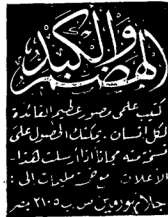 الهضم والكبد
كتيب علمى مصور عظيم الفائدة
لكل انسان. يمكنك الحصول على
نسخة منه مجانا اذا أرسلت هذا
الاعلان مع خمسة مليمات الى :
وليام بوروين س ب ٢١٠٥ مصر